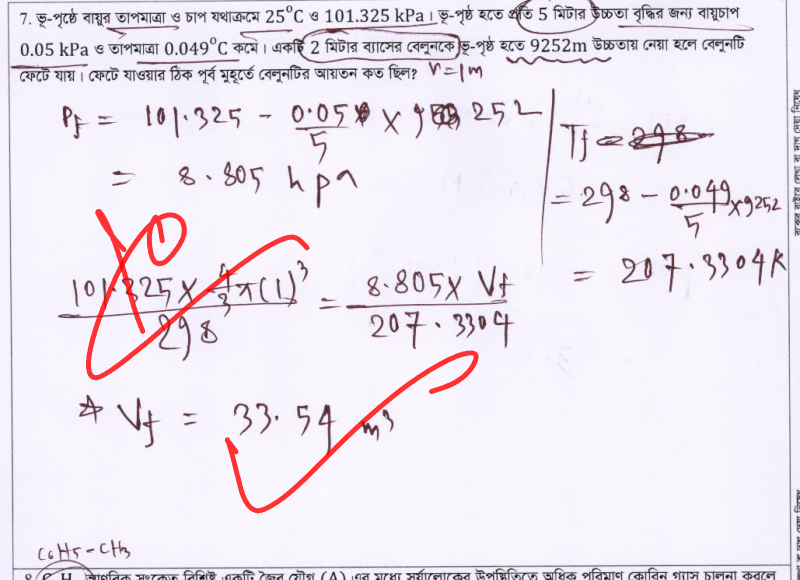 7. ভূ-পৃষ্ঠে বায়ুর তাপমাত্রা ও চাপ যথাক্রমে 25°C ও 101.325 kPa। ভূ-পৃষ্ঠ হতে প্রতি 5 মিটার উচ্চতা বৃদ্ধির জন্য বায়ুচাপ
0.05 kPa ও তাপমাত্রা 0.049°C কমে। একটি 2 মিটার ব্যাসের বেলুনকে ভূ-পৃষ্ঠ হতে 9252m উচ্চতায় নেয়া হলে বেলুনটি
ফেটে যায়। ফেটে যাওয়ার ঠিক পূর্ব মুহূর্তে বেলুনটির আয়তন কত ছিল? r = 1 m
P_f = 101.325 - 0.05/5 × 9252
= 8.805 kpa
T_f =
= 298 - 0.049/5 × 9252
= 207.3304 K
10
(101.325 × 4/3 π(1)³)/298 = (8.805 × V_f)/207.3304
V_f = 33.54 m³
C6H5-CH3
আণবিক সংকেত বিশিষ্ট একটি জৈব যৌগ (A) এর মধ্যে সূর্যালোকের উপস্থিতিতে অধিক পরিমাণ ক্লোরিন গ্যাস চালনা করলে